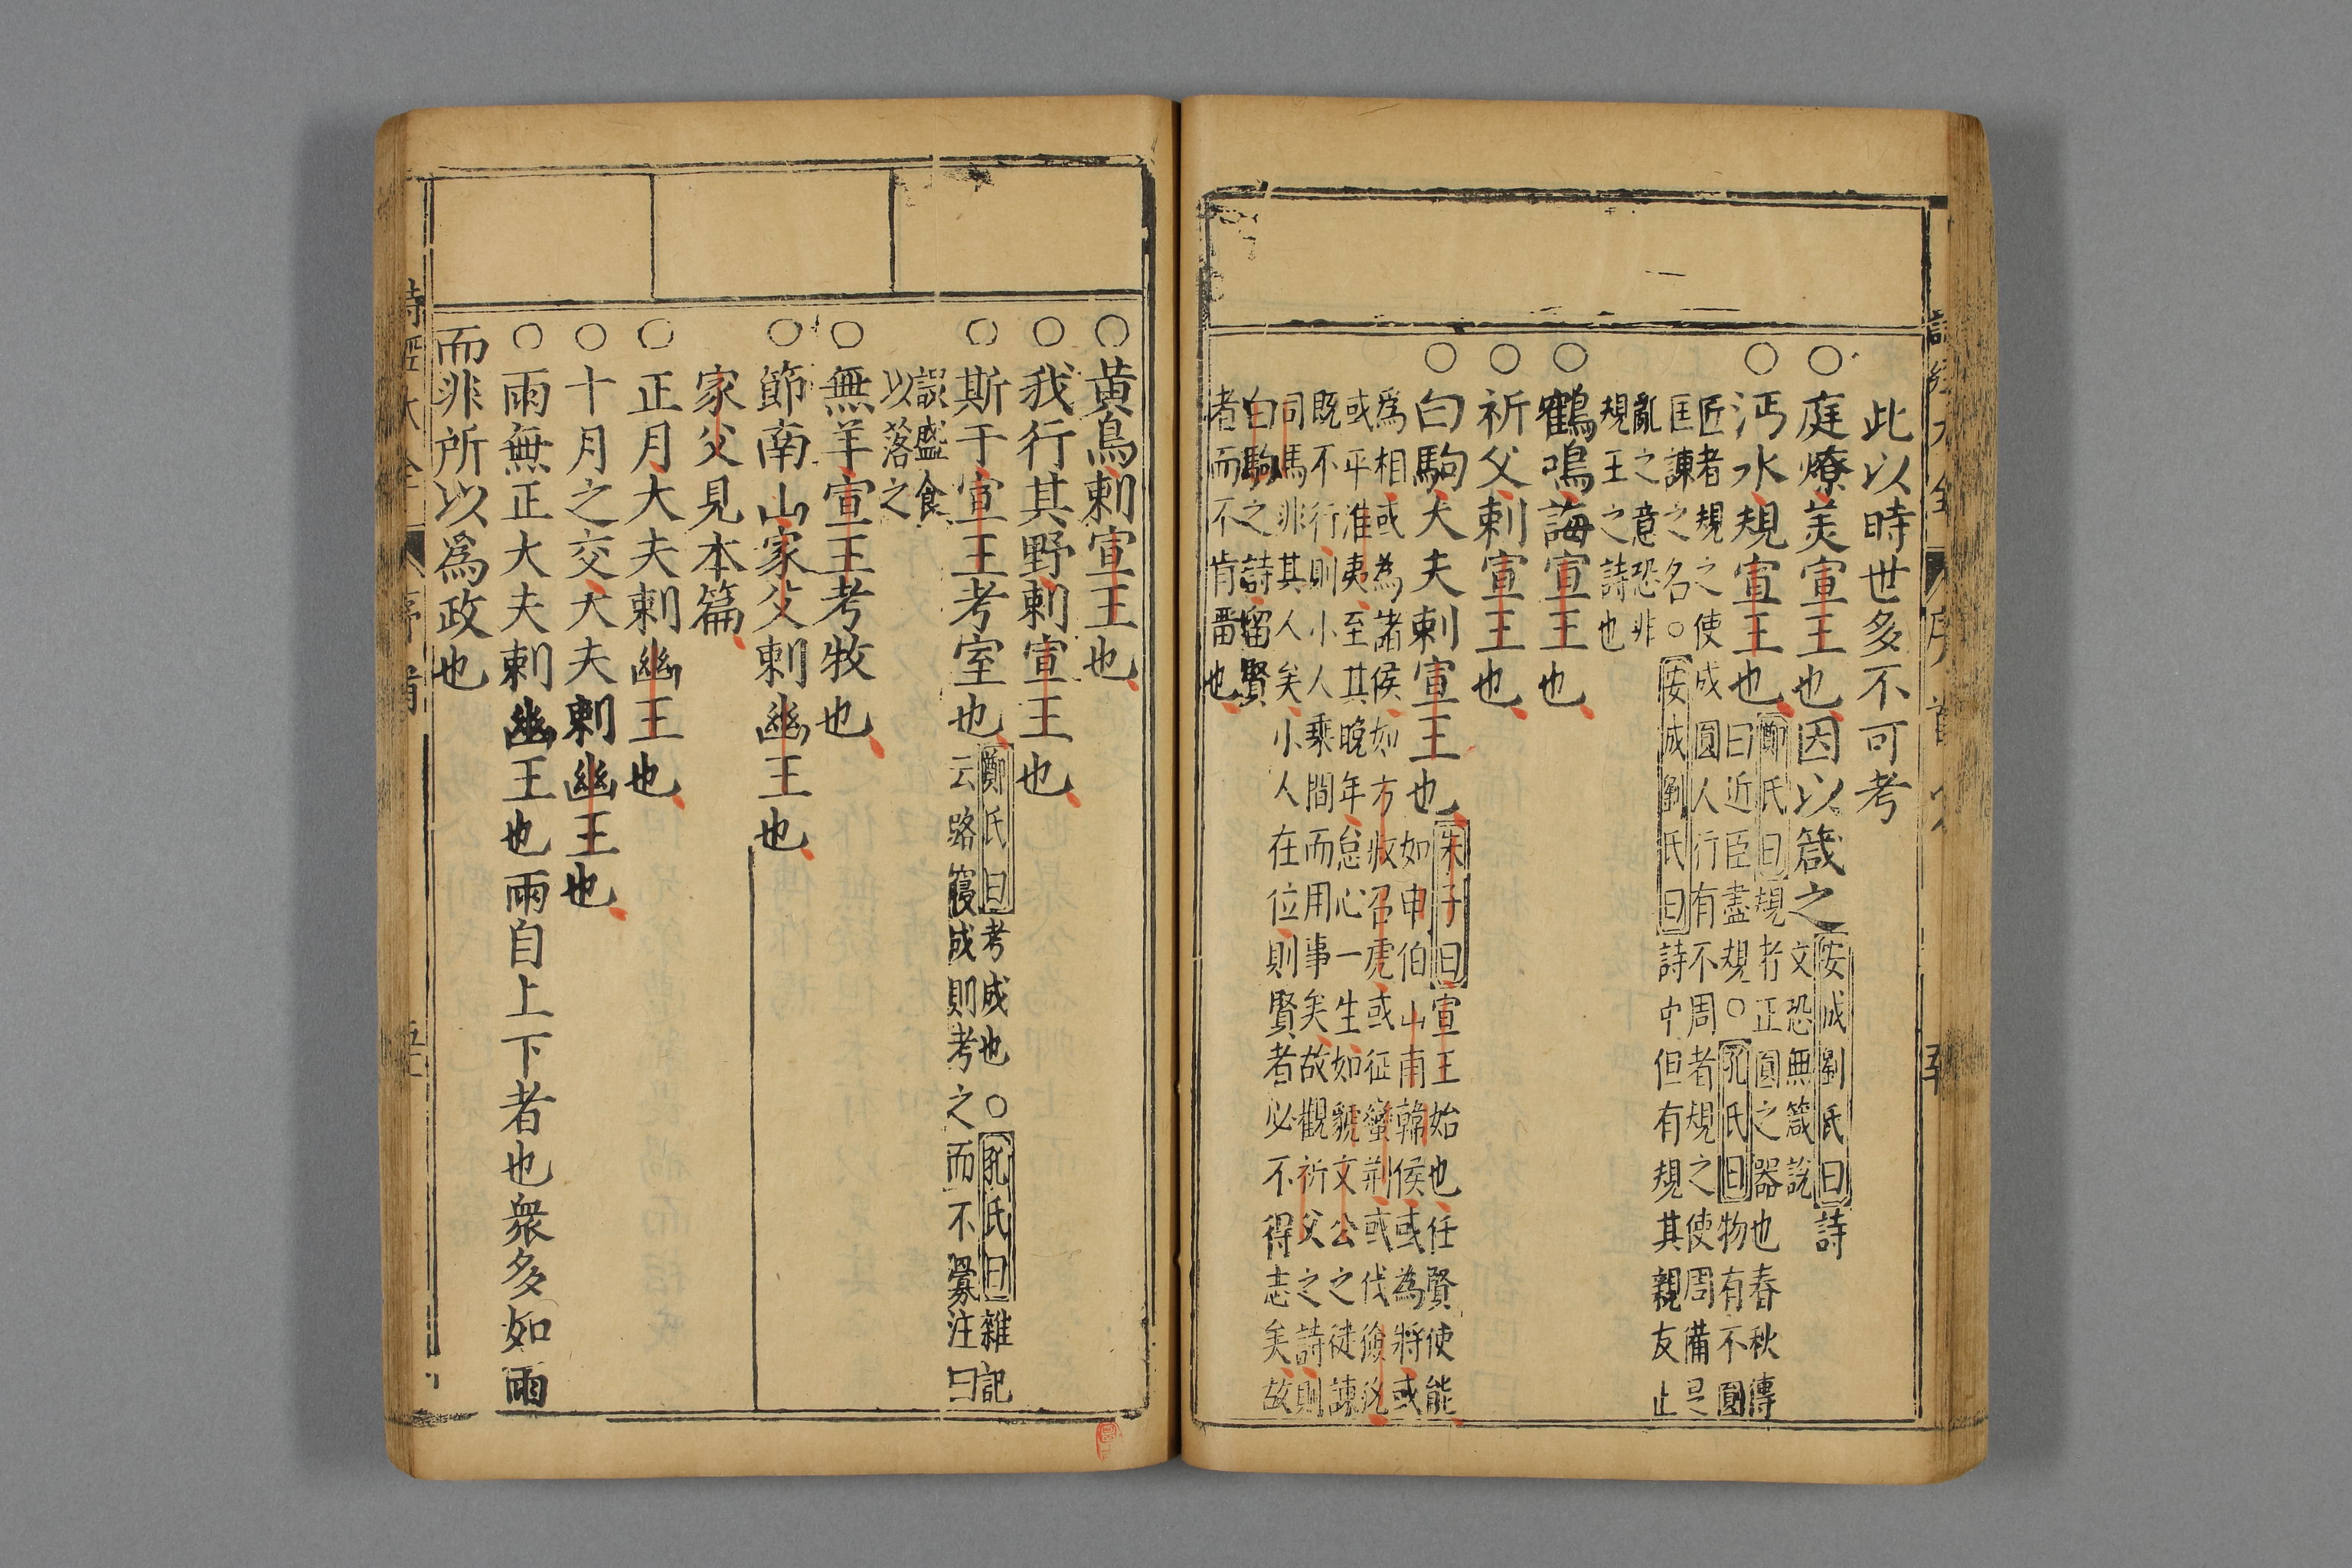 此以時世多不可考
○庭燎美宣王也因以箴之安成劉氏曰詩
文恐無箴說
○沔水規宣王也鄭氏曰規者正圓之器也春秋傳
曰近臣盡規○孔氏曰物有不圓
匠者規之使成圓人行有不周者規之使周備是
匡諫之名○安成劉氏曰詩中但有規其親友止
亂之意恐非
規王之詩也
○鶴鳴誨宣王也
○祈父刺宣王也
○白駒大夫刺宣王也朱子曰宣王始也任賢使能
如申伯山甫韓侯或為將或
爲相或為諸侯如方叔召虎或征蠻荆或伐玁狁
或平淮夷至其晚年怠心一生如虢文公之徒諫
既不行則小人乘間而用事矣故觀祈父之詩則
司馬非其人矣小人在位則賢者必不得志矣故
白駒之詩留賢
者而不肯留也
詩經大全 序
○黃鳥刺宣王也
○我行其野刺宣王也
○斯于宣王考室也鄭氏曰考成也○孔氏曰雜記
云路寢成則考之而不釁注曰
設盛食
以落之
○無羊宣王考牧也
○節南山家父刺幽王也
家父見本篇
○正月大夫刺幽王也
○十月之交大夫刺幽王也
○雨無正大夫刺幽王也雨自上下者也衆多如雨
而非所以爲政也
詩經大全 序